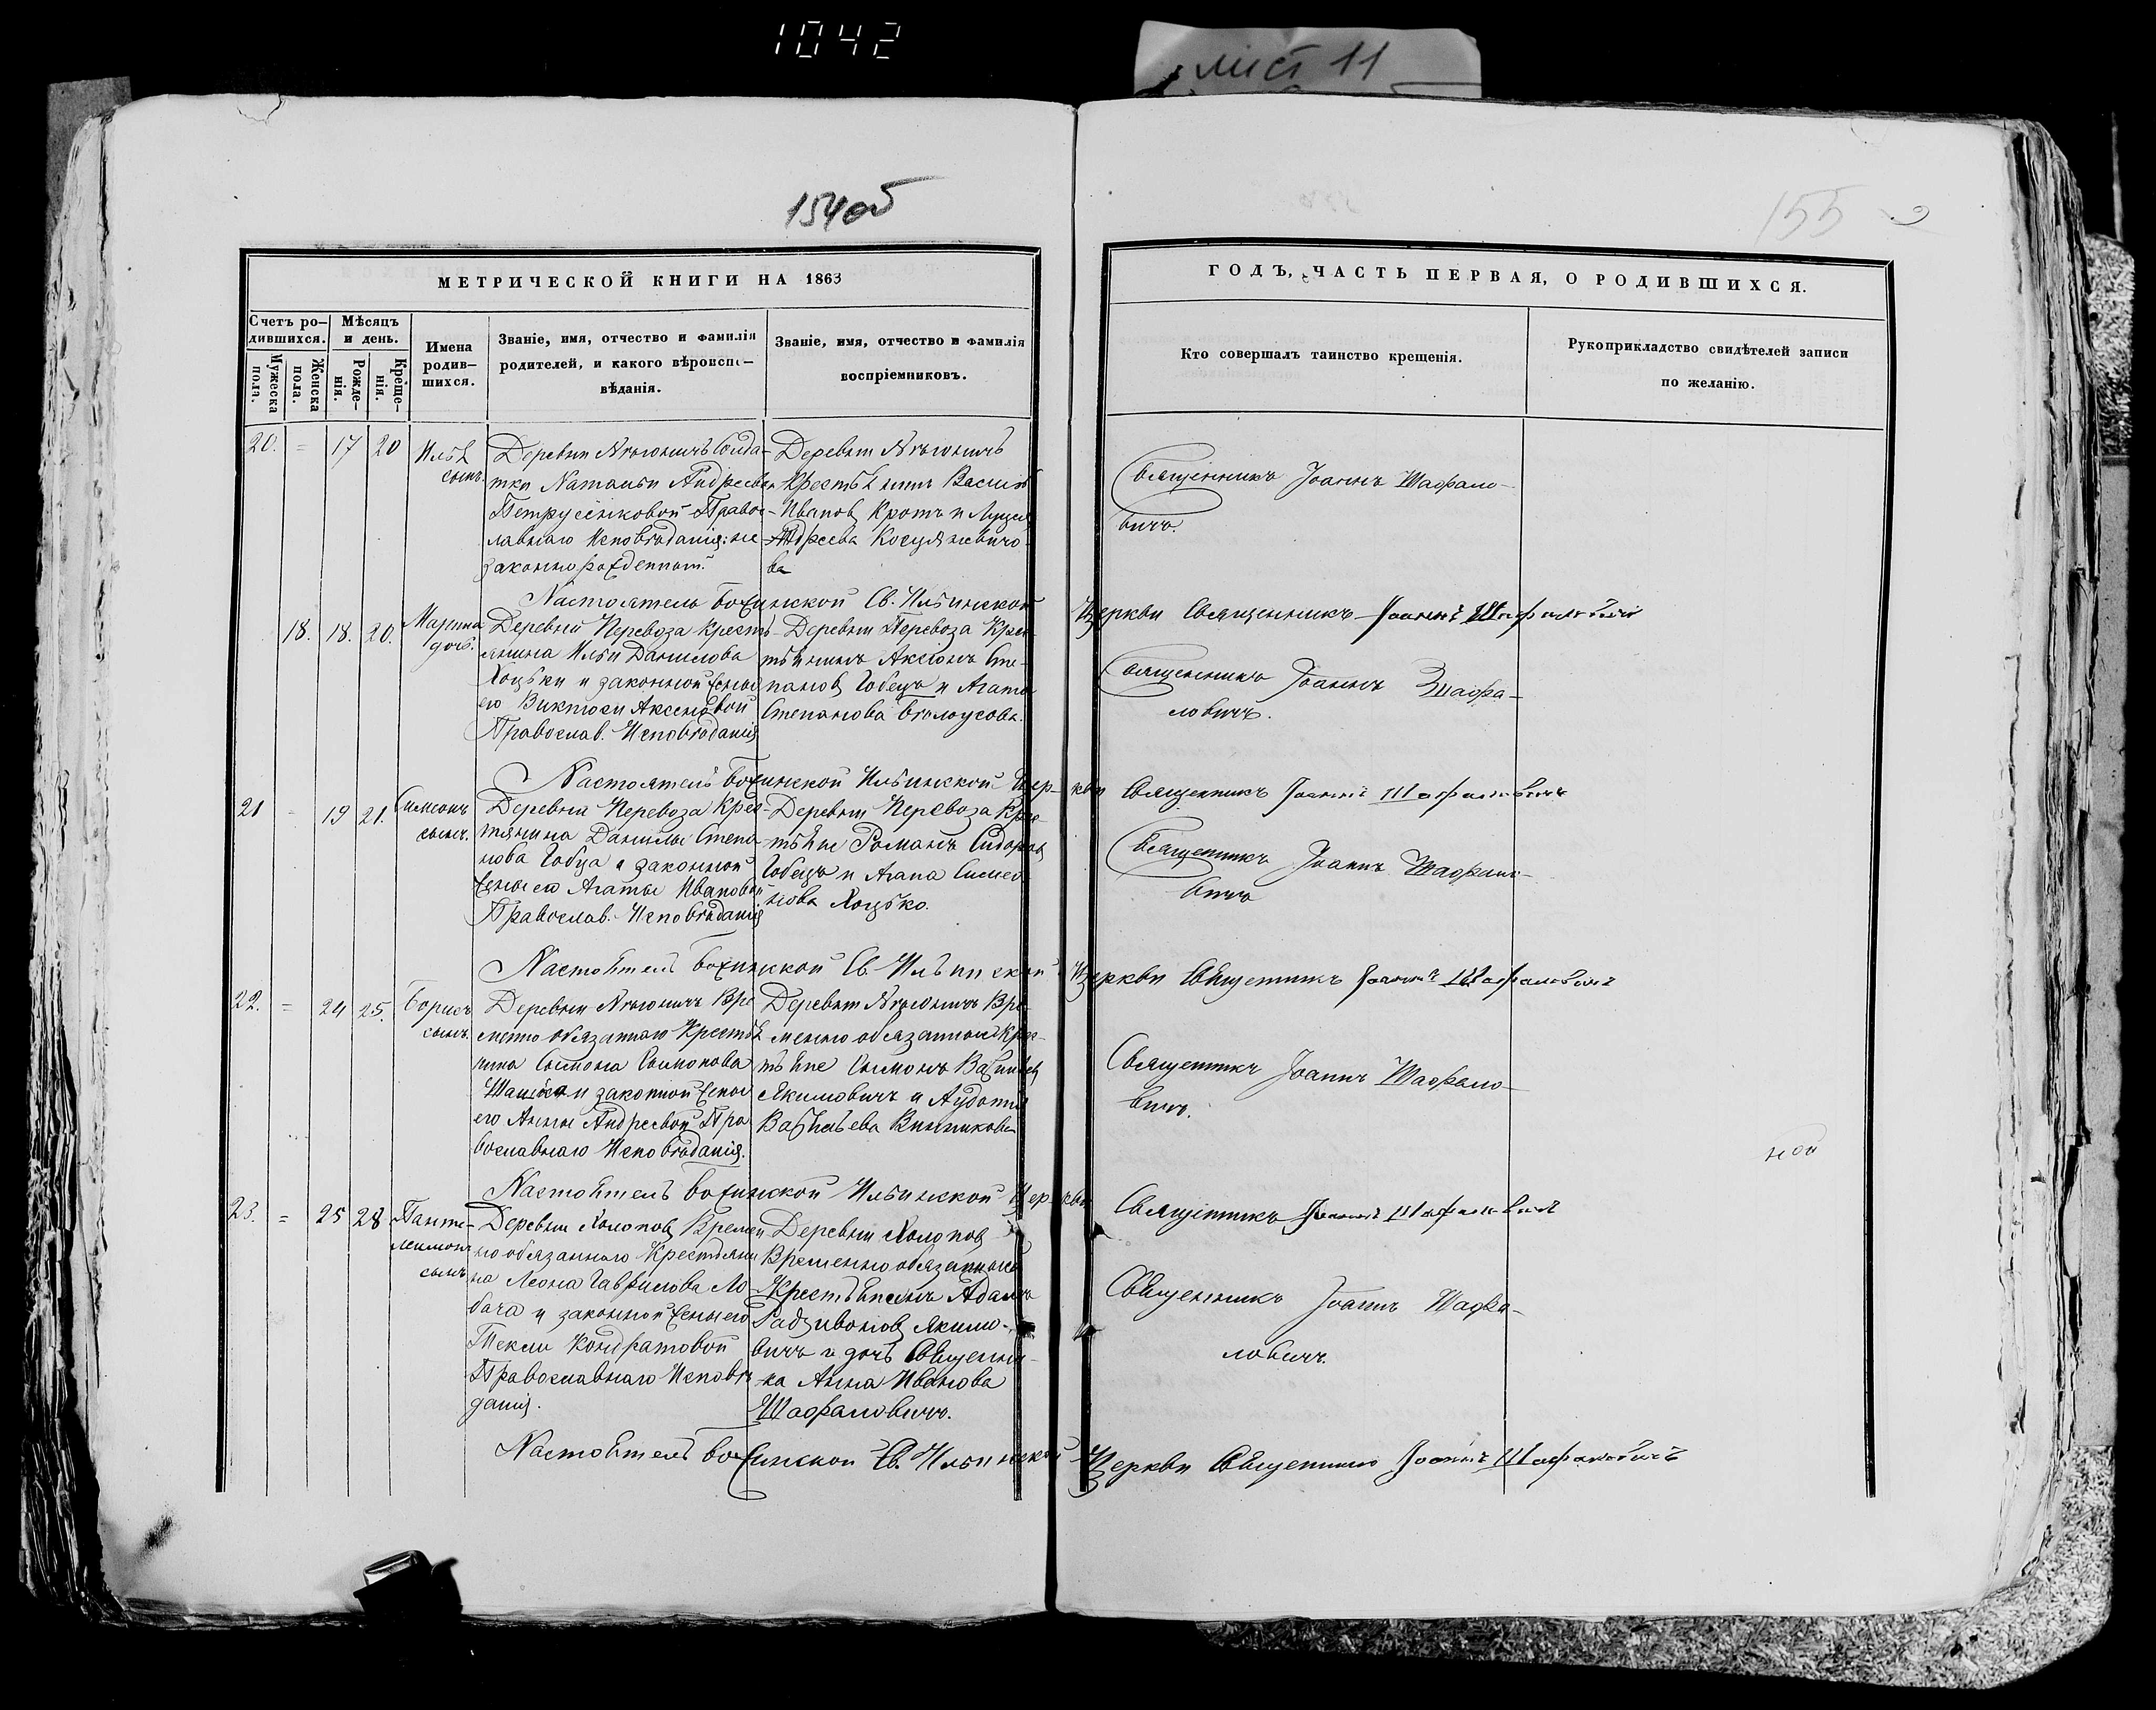 1042
лист 11
154об
155
МЕТРИЧЕСКОЙ КНИГИ НА 1863
ГОДЪ, ЧАСТЬ ПЕРВАЯ, О РОДИВШИХСЯ.
Счетъ ро-
дившихся.
Мужеска
пола.
Женска
пола.
Мѣсяцъ
и день.
Рожде-
нія.
Креще-
нія.
Имена
родив-
шихся.
Званіе, имя, отчество и фамилія
родителей, и какого вѣроиспо-
вѣданія.
Званіе, имя, отчество и фамилія
воспріемниковъ.
Кто совершалъ таинство крещенія.
Рукоприкладство свидѣтелей записи
по желанію.
20. = 17 20
Илья
сынъ.
Деревни Солда-
тки Натальи Андреева
Петрусенковой Правос-
лавнаго Исповѣданія: не
законнорожденный.
Деревни
Крестьянинъ Василій
Ивановъ Кротъ и
Андреева
ва
Священникъ Іоаннъ Шафало-
вичъ.
Настоятель Божинской Св. Ильинской Церкви Священникъ Іоаннъ Шафаловичъ
18. 18. 20.
Марина
дочь.
Деревни Перевоза Кресть-
янина Ильи Данилова
Хоцьки и законной жены
его Аксеновой
Православ. Исповѣданія
Деревни Перевоза Крес-
тьянинъ Аксюнъ Сте-
пановъ Гобецъ и Агата
Степанова Бѣлоусова.
Священникъ Іоаннъ Шафа-
ловичъ.
Настоятель Божинской Ильинской Церкви Священникъ Іоаннъ Шафаловичъ
21 = 19 21.
Симеонъ
сынъ.
Деревни Перевоза Крес-
тянина Данилы Степа-
нова Гобца и законной
жены его Агаты Ивановой
Православ. Исповѣданія
Деревни Перевоза Крес-
тьяне Романъ Сидоровъ
Гобецъ и Агапа Симео-
нова Хоцько.
Священникъ Іоаннъ Шафало-
вичъ
Настоятель Божинской Св. Ильинской Церкви Священникъ Іоаннъ Шафаловичъ
22. = 24 25.
Борисъ
сынъ.
Деревни Вре
менно обязаннаго Крестья
нина Сымона Сымонова
и законной жены
его Анны Андреевой Пра
вославнаго Исповѣданія.
Деревни Вре-
менно обязанной Крес-
тьяне Сымонъ
Якимовичъ и Аудотия
Васильева Винникова
Священникъ Іоаннъ Шафало-
вичъ.
ной
Настоятель Божинской Ильинской Церкви Священникъ Іоаннъ Шафаловичъ
23. = 25 28
Панте-
леимонъ
сынъ
Деревни Холоповъ Времен
но обязаннаго Крестьяни
на Леона Гаврилова Ло
бача и законной жены его
Теклы Кондратовой
Православнаго Исповѣ
данія.
Деревни Холоповъ
Временно обязанный
Крестьянинъ Адамъ
Радзивоновъ Якимо-
вичъ и дочь Священни-
ка Анна Иванова
Шафаловичъ.
Священникъ Іоаннъ Шафа-
ловичъ.
Настоятель Божинской Св. Ильинской Церкви Священникъ Іоаннъ Шафаловичъ